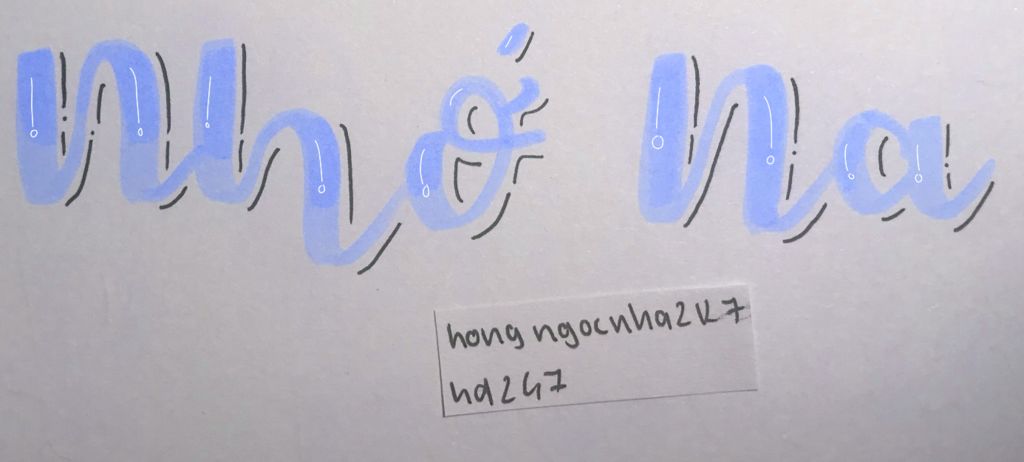 Nhớ Na
hongngocnha2k7
hd247